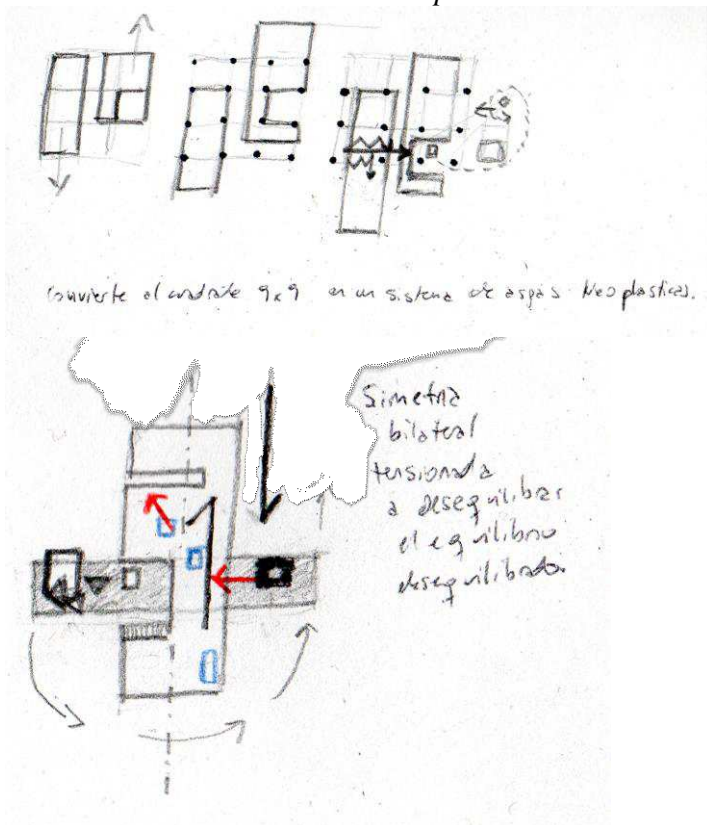 Convierte el cuadrado 9x9 en un sistema de aspas Neoplasticas.
Simetria
bilateral
tensionada
a desequilibrar
el equilibrio
desequilibrado.